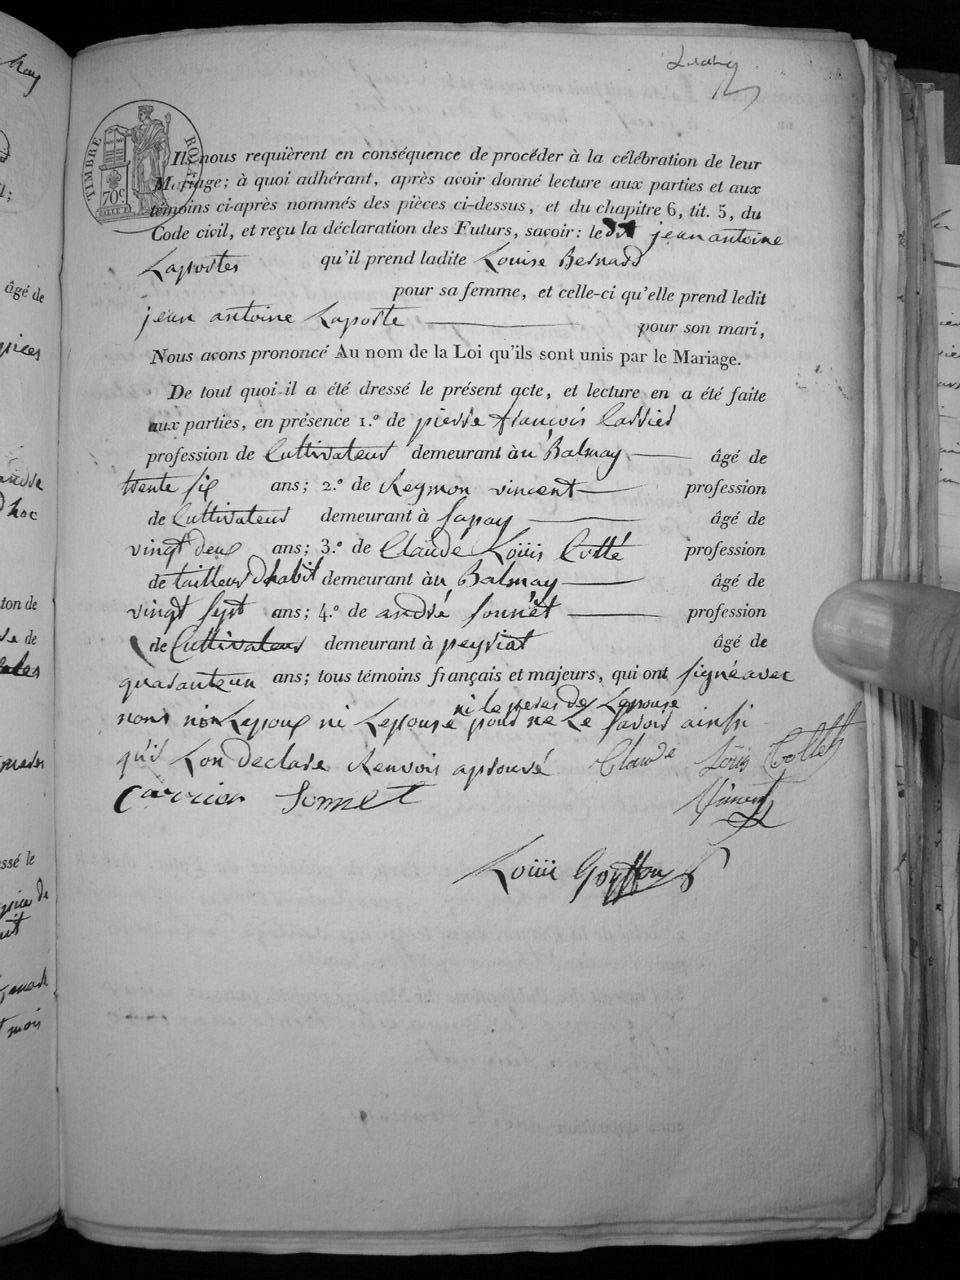 TIMBRE ROYAL
70c
Ils nous requièrent en conséquence de procéder à la célébration de leur
Mariage; à quoi adhérant, après avoir donné lecture aux parties et aux
témoins ci-après nommés des pièces ci-dessus, et du chapitre 6, tit. 5, du
Code civil, et reçu la déclaration des Futurs, savoir: le dit jean antoine
Laposter qu'il prend ladite Louise Besnard
pour sa femme, et celle-ci qu'elle prend ledit
jean antoine Laposte pour son mari,
Nous avons prononcé Au nom de la Loi qu'ils sont unis par le Mariage.
De tout quoi il a été dressé le présent acte, et lecture en a été faite
aux parties, en présence 1.° de pierre françois Carrier
profession de Cultivateur demeurant à au Balmay âgé de
trente six ans; 2.° de Reymon vincent profession
de Cultivateur demeurant à Sapay âgé de
vingt deux ans; 3.° de Claude Louis Collé profession
de tailleur dhabit demeurant à au Balmay âgé de
vingt sept ans; 4.° de andré Sonnet profession
de Cultivateur demeurant à peyriat âgé de
quarante un ans; tous témoins français et majeurs, qui ont signé avec
ni le peres de Lepouse
nous non Lepoux ni Lepouse pour ne Le savoir ainsi
qu'il Lon declare Renvois aprouvé Claude Louis Collet
Carrier Sonnet Vincent
Louis Goyffon